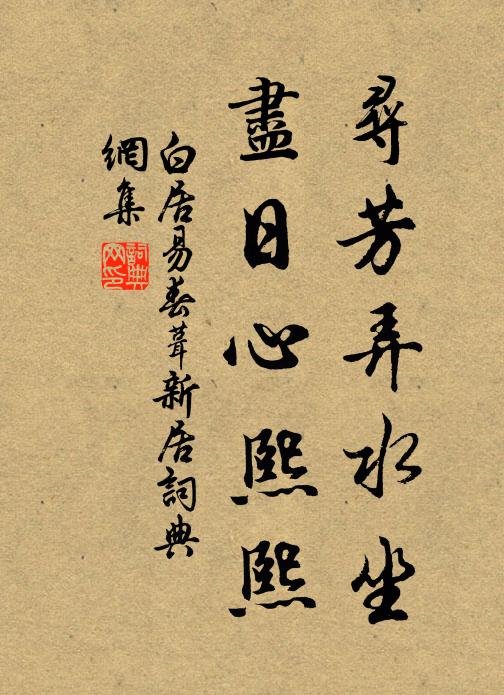 尋芳弄水坐
盡日心熙熙
白居易春葺新居詞典
網集
詞典网印